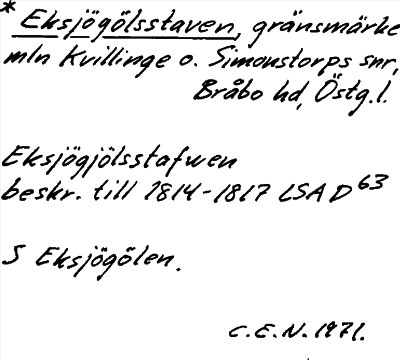 * Eksjögölsstaven, gränsmärke
mln Kvillinge o. Simonstorps snr,
Bråbo hd, Östg.l.
Eksjögjölsstafwen
beskr. till 1814-1817 LSA D 63
S Eksjögölen.
C.E.N. 1971.